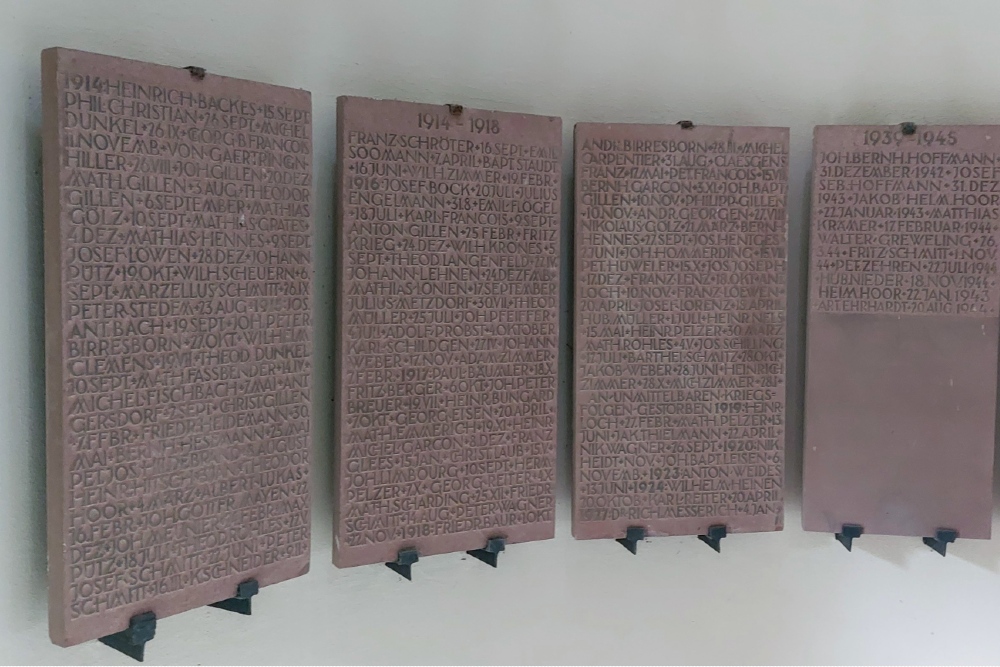 1914·HEINRICH·BACKES·15.SEPT.
PHIL.CHRISTIAN·26.SEPT.·MICHEL
DUNKEL·26.IX·GEORG.B.FRANCOIS
11.NOVEMB.·VON·GAERTRINGN-
HILLER·26.VIII·JOH.GILLEN·20.DEZ
MATH.GILLEN·5.AUG.THEODOR
GILLEN·6.SEPTEMBER·MATHIAS
GOLZ·10.SEPT.·MATHIAS.GRATES·
4.DEZ.·MATHIAS·HENNES·9.SEPT.
JOSEF·LÖWEN·28.DEZ.JOHANN
PÜTZ·19.OKT·WILH.SCHEUERN·6.
SEPT.·MARZELLUS·SCHMITT·26.IX
PETER·STEDEM·23.AUG JOS.
ANT.BACH·19.SEPT.·JOH.PETER
BIRRESBORN·27.OKT·WILHELM
CLEMENS·19.VII·THEOD.DUNKEL
30.SEPT.·MATH.FASSBENDER·14.IV
MICHEL·FISCHBACH·7.MAI·ANT
GERSDORF·2.SEPT.·CHRIST.GILLEN
7.FEBR·FRIEDR.HEIDEMANN·30.
MAI HESEMANN·25.MAI
PET.JOS. AUGUST
HEINR.
HOOR·4.MÄRZ·ALBERT·LUKAS·
16.FEBR·JOH.GOTTFR.MAYEN·27.
DEZ·JOH.
PÜTZ·18.JULI JUNI·PETER
JOSEF·SCHMITT
SCHMITT·16.III·K.SCHNEIDER·9.II.
1914 - 1918
FRANZ·SCHRÖTER·16.SEPT·EMIL
SOOMANN·7.APRIL·BAPT.STAUDT
16.JUNI·WILH.ZIMMER·19.FEBR.
1916·JOSEF·BOCK·20.JULI·JULIUS
ENGELMANN·31.8·EMIL·FLÖGEL
18.JULI·KARL·FRANCOIS·9.SEPT.
ANTON·GILLEN·25.FEBR·FRITZ
KRIEG·24.DEZ·WILH.KRONES·5.
SEPT·THEOD.LANGENFELD·22.IV
JOHANN·LEHNEN·24.DEZEMB.
MATHIAS·LONIEN·17.SEPTEMBER
JULIUS·METZDORF·30.VII·THEO
MÖLLER·25.JULI·JOH.PFEIFFER·
4.JULI·ADOLF·PROBST·4.OKTOBER
KARL·SCHILDGEN·27.IV·JOHANN
WEBER·17.NOV·ADAM·ZIMMER·
7.FEBR.·1917·PAUL·BÄUMLER·18.X
FRITZ·BERGER·6.OKT·JOH.PETER
BREUER·19.VII·HEINR.BUNGARD
7.OKT·GEORG·EISEN·20.APRIL·
MATH.EMMERICH·19.XI·HEINR
MICHEL·GARCON·8.DEZ·FRANZ
GLEES CHRIST.LAUB·15.V.
JOH.LIMBOURG·10.SEPT·HERM
PELZER·7.X·GEORG·REITER·4.X
MATH.SCHARDING·25.XII·FRIEDR
SCHMITT·14.AUG.·PETER·WAGNER
12.NOV·1918·FRIEDR.BAUR·1.OKT.
ANDR.BIRRESBORN·28.III·MICHEL
CARPENTIER·31.AUG·CLAESGENS
FRANZ·17.MAI·PET.FRANCOIS·15.VII
BERNH.GARCON·3.XI·JOH.BAPT
GILLEN·10.NOV·PHILIPP·GILLEN
·10.NOV·ANDR.GEORGEN·27.VIII
NIKOLAUS·GOLZ·21.MÄRZ·BERNH
HENNES·22.SEPT·JOS.HENTGES
JUNI·JOH.HOMMERDING·15.VII
PET.HÜWELER·15.X·JOS.JOSEPH
17.DEZ·FRANZ·LENZ·18.OKT·JOH
LOCH·10.NOV·FRANZ·LÖWEN·
20.APRIL·JOSEF·LORENZ·18.APRIL·
HUB.MÜLLER·1.JULI·HEINR.NELS
15.MAI·HEINR.PELZER·30.MÄRZ
MATH.ROHLES·4.V·JOS.SCHILLING
17.JULI·BARTHEL·SCHMITZ·28.OKT·
JAKOB·WEBER·28.JUNI·HEINRICH
ZIMMER·28.X·MICH.ZIMMER·28.I·
AN·UNMITTELBAREN·KRIEGS=
FOLGEN·GESTORBEN·1919·HEINR·
JOCH·27.FEBR·MATH·PELZER·13.
JUNI·JAK.THIELMANN·22.APRIL·
NIK.WAGNER·26.SEPT·1920·NIK.
HEIDT·NOV·JOH.BAPT.EISEN·6.
NOVEMB.·1923·ANTON·WEIDES
·13.JUNI·1924·WILHELM·HEINEN
OKTOB·KARL·REITER·20.APRIL
1927·DR·RICH.MESSERICH·4.JAN·
1939-1945
JOH.BERNH.HOFFMANN·
31.DEZEMBER·1942·JOSEF
SEB.HOFFMANN·31.DEZ.
1943·JAKOB·HELM.HOOR
·22.JANUAR·1943·MATTHIAS
KRÄMER·17.FEBRUAR·1944·
WALTER·GREWELING·26.
44·FRITZ·SCHMITT·1.NOV.
44·PET.ZEHREN·22.JULI·1944
HUB.NIEDER·18.NOV.1944·
HELM.HOOR·22.JAN.1943·
20.AUG.1944·